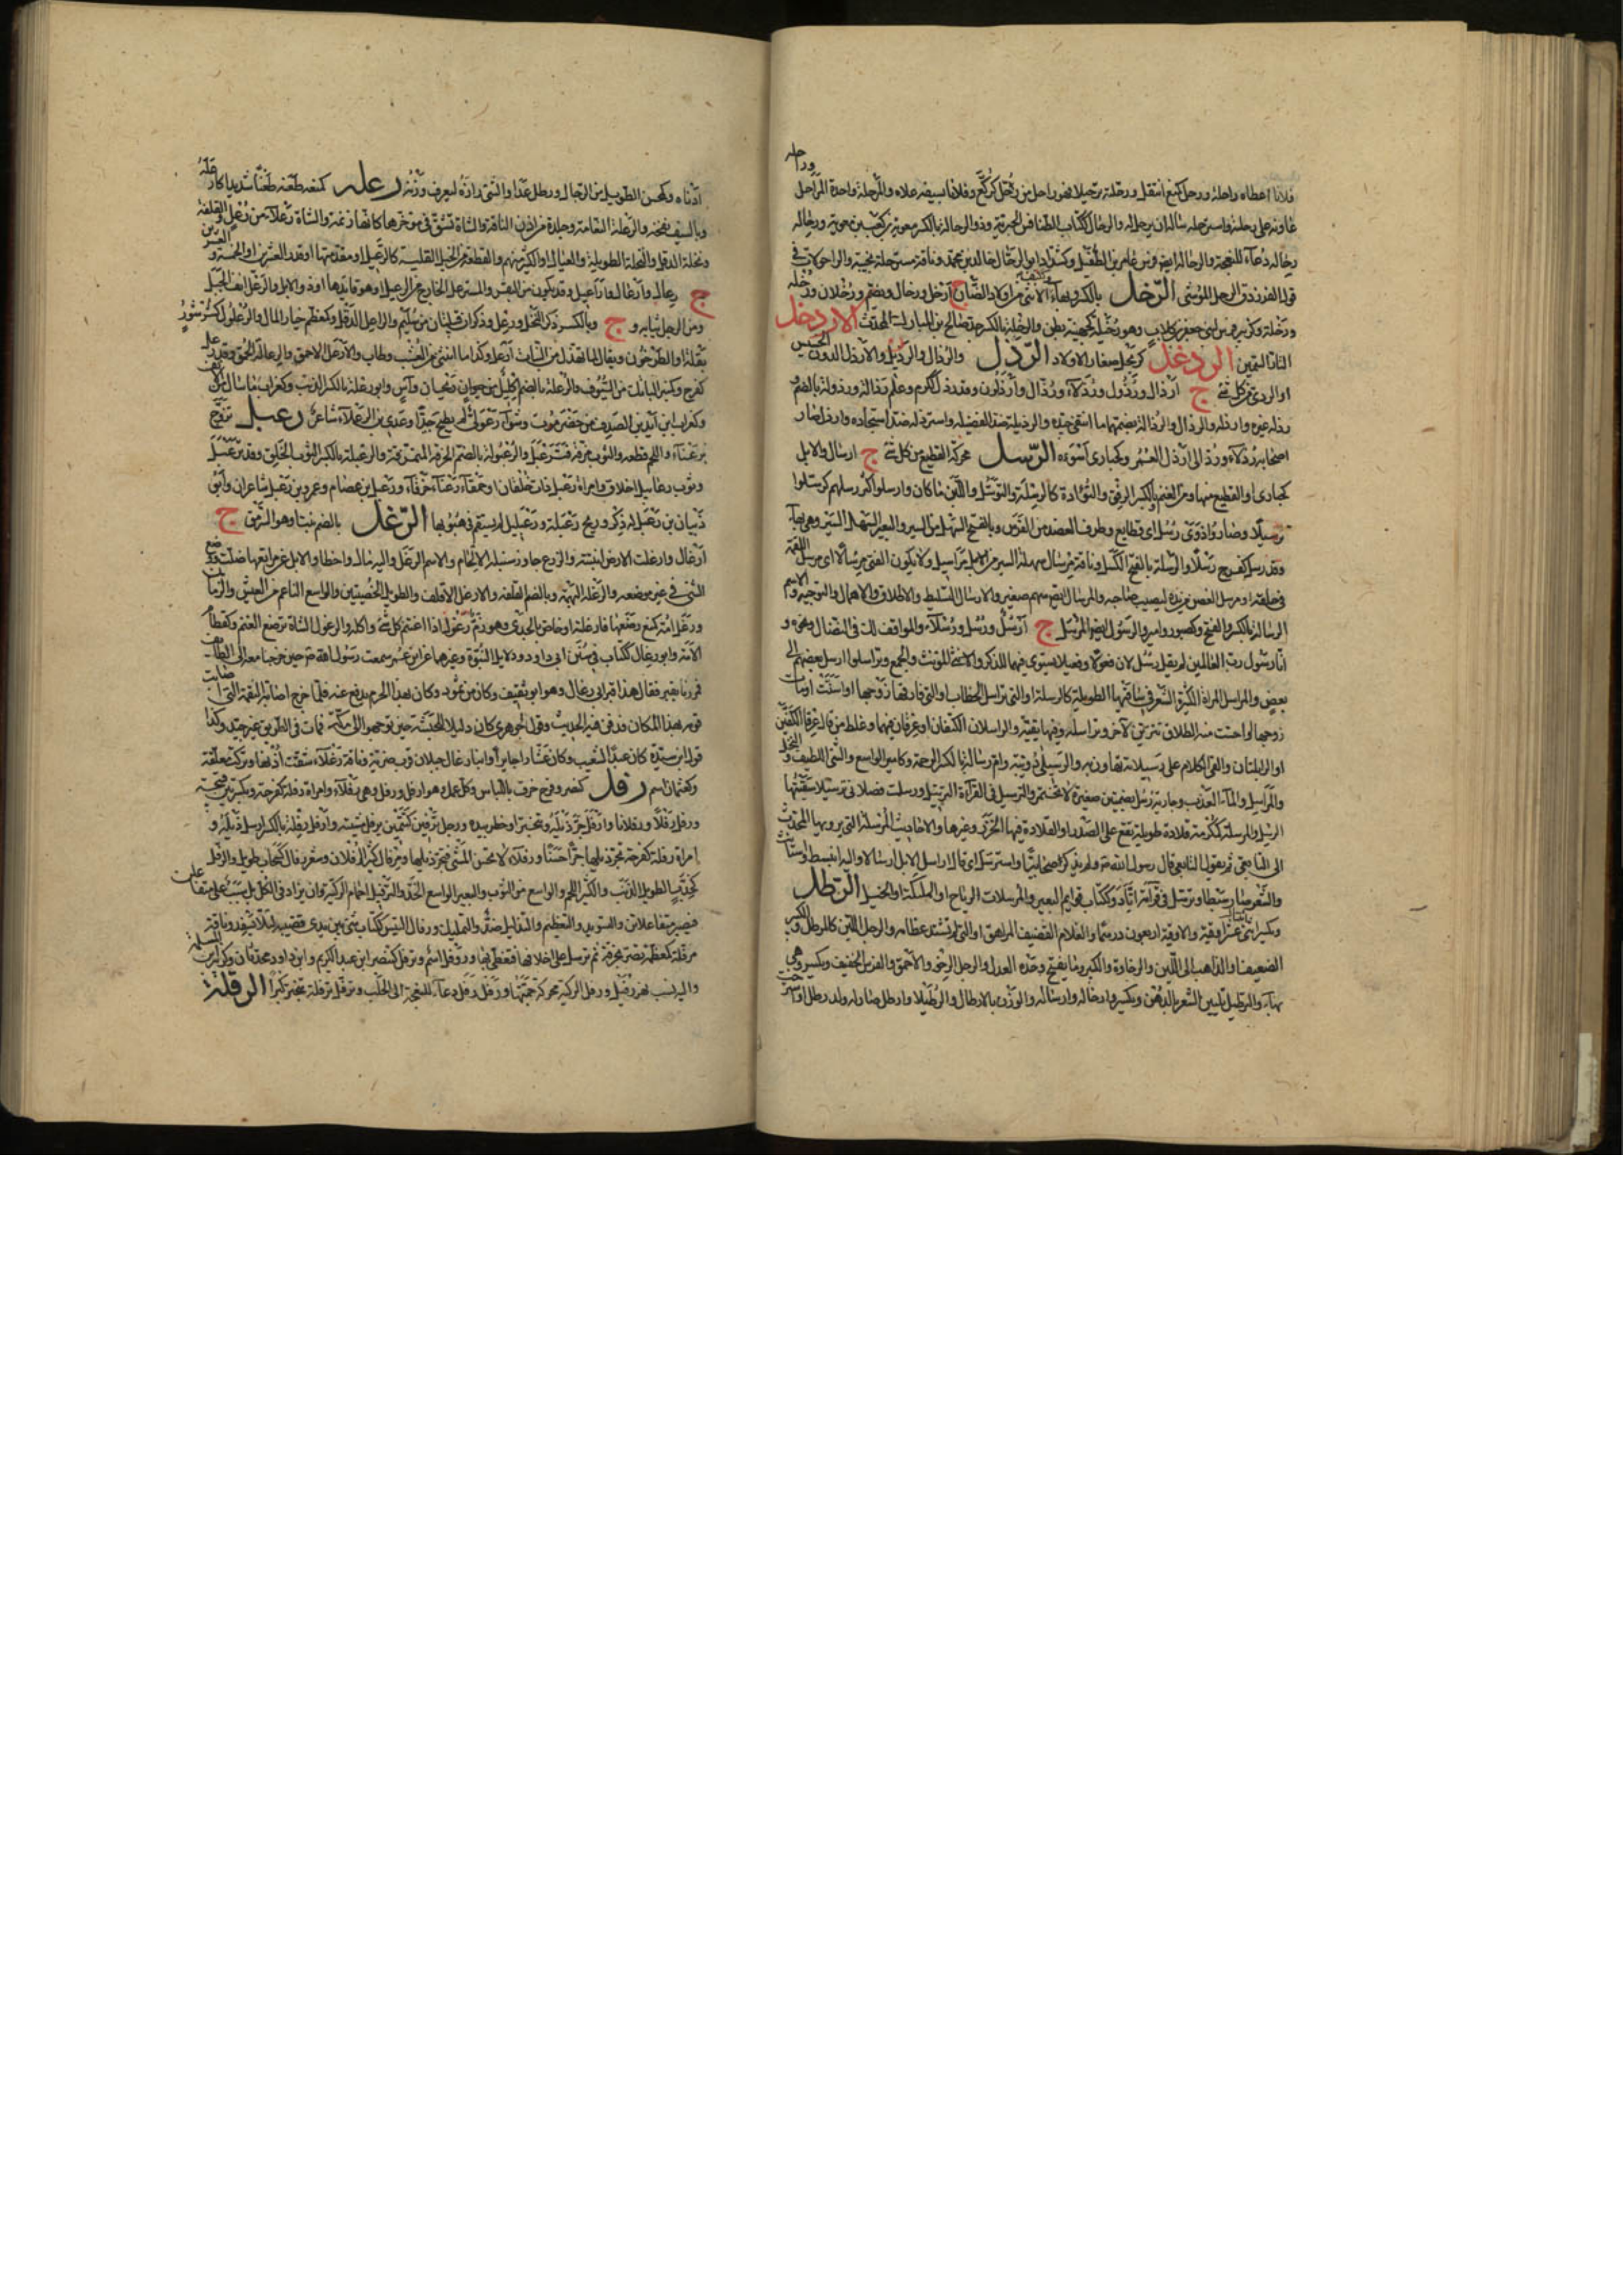 وراحلة
فلانا اعطاه راحلة ورحل كمنع انتقل ورحلته ترحيلا فهو راحل من رحل كركع وفلانا بسيفه علاه والمرحلة واحدة المراحل
عاونه على رحلته واسترحله سأله ان يرحل له والرحال ككتاب الطنافس الحيرية وذو الرحالة بالكسر معوية بن كعب بن معوية ورحاله
رحاله دعاء للنعجة والرحالة ايضا فرس عامر بن الطفيل وكشداد ابو الرحال خالد بن محمد وناقة مسترحلة نجيبة والراحولات في
قول الفرزدق الرحل الموشى الرخل بالكسر وبهاء وككتف الانثى من اولاد الضأن ج ارخل ورخال ويضم ورخلان ورخلة
ورخلة وكزبير فرس لبنى جعفر بن كلاب وهو رخيلة كجهينة بطن والرخلة بالكسر جد صالح بن المبارك المحدث الاردخل
التار السمين الردعل كزبرج صغار الاولاد الرذل والرذال والرذيل والارذل الدون الخسيس
او الردى من كل شئ ج ارذال ورذول ورذلاء ورذال وارذلون وقد رذل ككرم وعلم رذالة ورذولة بالضم
رذله غيره وارذله والرذال والرذالة بضمهما ما انتقى جيده والرذيلة ضد الفضيلة واسترذله ضد استجاده وارذل صار
اصحابه رذلاء ورذالى ارذل العمر وكحبارى اسوءه الرسل محركة القطيع من كل شئ ج ارسال والابل
كحبارى او القطيع منها ومن الغنم وبالكسر الرفق والتؤدة كالرسلة والترسل واللبن ما كان وارسلوا كثر رسلهم كرسلوا
ترسيلا وصاروا ذوى رسل اى قطايع وطرف العضد من الفرس وبالفتح السهل من السير والبعير السهل السير وهى بهاء
وقد رسل كفرح رسلا ورسالة والرسلة بالفتح الكسل وناقة مرسال سهلة السير من الابل مراسيل ولا يكون الفتى مرسالا اى مرسل اللقمة
فى حلقه او مرسل الغصن من يده ليصيب صاحبه والمرسال ايضا سهم صغير والارسال التسليط والاطلاق والاهمال والتوجيه والاسم
الرسالة بالكسر والفتح وكصبور وامير والرسول ايضا المرسل ج ارسل ورسل ورسلاء والموافق لك فى النضال ونحوه و
انا رسول رب العالمين لم يقل رسل لان فعولا وفعيلا يستوى فيهما المذكر والمؤنث والواحد والجمع وتراسلوا ارسل بعضهم الى
بعض والمراسل المراة الكثيرة الشعر فى ساقيها الطويلة كالرسلة او التى تراسل الخطاب او التى فارقها زوجها او اسنت او مات
زوجها او احست منه الطلاق تتزين لآخر وتراسله وفيها بقية والراسلان الكتفان او عرقان فيهما وغلط من قال عرقا الكفين
او الوابلتان والقى الكلام على رسيلاته تهاون به والرسيلى دويبة وام رسالة بالكسر الرخمة وكامير الواسع والشئ اللطيف والفحل
والمراسيل والماء العذب وجارية رسل بضمتين صغيرة لا تختمر والترسيل فى القرآءة الترتيل ورسلت فصلانى ترسيلا سقيتها
الرسل والمرسلة كمكرمة قلادة طويلة تقع على الصدر او القلادة فيها الخرز وغيرها والاحاديث المرسلة التى يرويها المحدث
الى التابعى ثم يقول التابعى قال رسول الله صم ولم يذكر صحابيا واسترسل اى قال ارسل الابل ارسالا واليه انبسط واستأنس
والشعر صار سبطا وترسل فى قراءته اتأد وككتاب قوايم البعير والمرسلات الرياح او الملئكة او الخيل الرطل
ويكسر اثنى عشر اوقية والاوقية اربعون درهما والغلام القضيف المراهق او الذى لم تشتد عظامه والرجل اللين كالمرطل وبالكسر
الضعيف او الذاهب الى اللين والرخاوة والكبير وما يفتح وحده العدل والرجل الرخو والاحمق والفرس الخفيف ويكسر وهى
بهاء والترطيل تليين الشعر بالدهن وتكسيره ارخاله وارساله والوزن بالارطال والرطيلا وارطل صار له ولد رطل او استرخت
اذناه وكمحسن الطويل من الرجال ورطل عدا والشئ رازه ليعرف وزنه رعله كمنعه طعنه طعنا شديدا كارعله
وبالسيف نفحه والرعلة النعامة وجلدة من اذن الناقة والشاة تشق فى مؤخرها كانها زنمة والشاة رعلاء من رعل والقلفة
ونخلة الدقل والنخلة الطويلة والعيال او الكثير منهم والقطعة من الخيل القليلة كالرعيل او مقدمتها او قدر العشرين او الخمسة والعشرين
ج رعال وارعال واراعيل وقد يكون من البقر والمسترعل الخارج فى الرعيل او هو قايدها او ذو الابل والرعل انف الجبل
ومن الرجل ثيابه و ج وبالكسر ذكر النخل ورعل وذكوان قبيلتان من سليم والراعل الدقل وكمعظم خيار المال والرعلول كسرسور
بقلة او الطرخون ويقال لما تهدل من النبات ارعل وكذا ما انثنى من العشب وطاب والارعل الاحمق والرعالة الحمق وقد رعل
كفرح وكمنبر البانك من السيوف والرعلة بالضم اكليل من ريحان وآس وابو رعلة بالكسر الذئب وكغراب ما سال من الانف
وكغراب ابن آيد بن الصدف من حضرموت وشواء رعولى لم يطبخ جيدا وعدى بن الرعلاء شاعر رعبل تزوج
برعناء واللحم قطعه والثوب مزقه فترعبل والرعبولة بالضم الخرقة المتمزقة والرعبلة بالكسر الثوب الخلق وقد ترعبل
وثوب رعابيل اخلاق وامراة رعبل ذات خلقان او حمقاء رعناء خرقاء ورعبل بن عصام وعمرو بن رعبل شاعران وابو
ذبيان بن رعبل له ذكر وريح رعبلة ورعبليل لم يستقم فى هبوبها الرغل بالضم نبتا وهو السرمق ج
ارغال وارغلت الارض انبتته والزرع جاوز سنبله الالحام والاسم الرغل واليه مال واخطأ والابل عن مراتعها ضلت ووضع
الشئ فى غير موضعه والرغلة البهمة وبالضم القلفة والارغل الاقلف والطويل الخصيتين والواسع الناعم من العيش والزمان
ورغل امه كمنع رضعها فارغلته او خاص بالجدى وهو رم رغول اذا اغتنم كل شئ واكله والرغول الشاة ترضع الغنم وكقطام
الامة وابو رغال ككتاب فى سنن ابى داود ودلايل النبوة وغيرهما عن ابن عمر سمعت رسول الله صم حين خرجنا معه الى الطايف
فمررنا بقبر فقال هذا قبر ابى رغال وهو ابو ثقيف وكان من ثمود وكان بهذا الحرم يدفع عنه فلما خرج اصابته النقمة التى اصابت
قومه بهذا المكان فدفن فيه الحديث وقول الجوهرى كان دليلا للحبشة حين توجهوا الى مكة فمات فى الطريق غير جيد وكذا
قول ابن سيده كان عبدا لشعيب وكان عشارا جايرا وابنا رغال جبلان قرب ضرية وناقة رغلاء شقت اذنها وتركت معلقة
وكعثمان اسم رفل كنصر وفرح خرق باللباس وكل عمل وهو ارفل ورفل وهى رفلاء وامراة رفلة كفرحة وبكسرتين قبيحة
ورفل رفلا ورفلانا وارفل جر ذيله وتبختر او خطر بيده ورجل ترفيل كتمتين يرفل فى مشيه وارفل رفله بالكسر ارسل ذيله و
امراة رفلة كفرحة تجر ذيلها جرا حسنا ورفلاء لا تحسن المشى فتجر ذيلها ومرفال كثيرة الرفلان وشعر رفال كسحاب طويل والرفل
كخدب الطويل الذنب والكثير اللحم والواسع من الثوب والبعير الواسع الجلد والترفيل اجمام الركية وان يزاد فى الكامل سبب على متفاعلن
فيصير متفاعلاتن والتسويد والتعظيم والتذليل ضد والتمليك ورفال التيس ككتاب شئ بين يدى قضيبه لئلا يسفد وناقة
مرفلة كمعظمة تصر بخرقة ثم ترسل على اخلافها فتغطى بها وروفل اسم وترفل كتنصر ابن عبد الكريم وابن داود محدثان
واليه نسب نهر رفيل ورفل الركية محركة جمتها ورفل رفل دعاء للنعجة الى الحلب وترفل ترفلة تبختر كبرا الرقلة